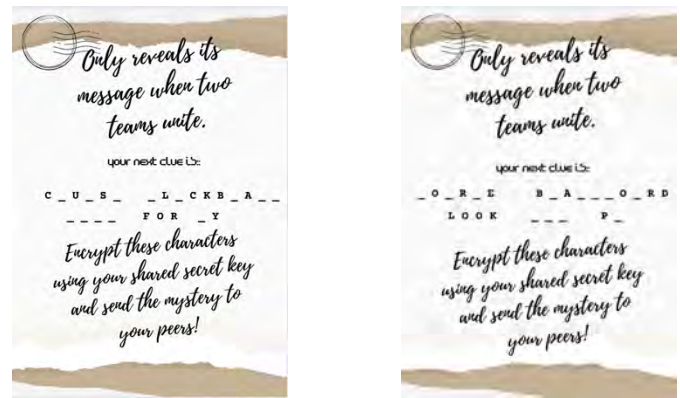 Only reveals its
message when two
teams unite.
your next clue is:
C _ U _ S _   _ L _ CKB _ A _ _
_ _ _ _   FOR _ Y
Encrypt these characters
using your shared secret key
and send the mystery to
your peers!
Only reveals its
message when two
teams unite.
your next clue is:
_ O _ R _ E   B _ A _ _ _ O _ RD
LOOK   _ _ _   P _
Encrypt these characters
using your shared secret key
and send the mystery to
your peers!